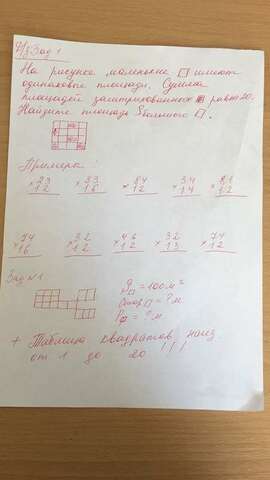 Д/з Зад 1
На рисунке маленькие □ имеют
одинаковые площади. Сумма
площадей заштрихованных равна 20.
Найдите площадь большого □.
Примеры:
×23 ×33 ×14 ×34 ×21
12 16 12 14 12
×74 ×32 ×46 ×32 ×74
16 12 12 13 12
Зад №1
S□ = 100 м²
Стор □ = ? м
P = ? м
+ Таблица квадратов наиз.
от 1 до 20 !!!